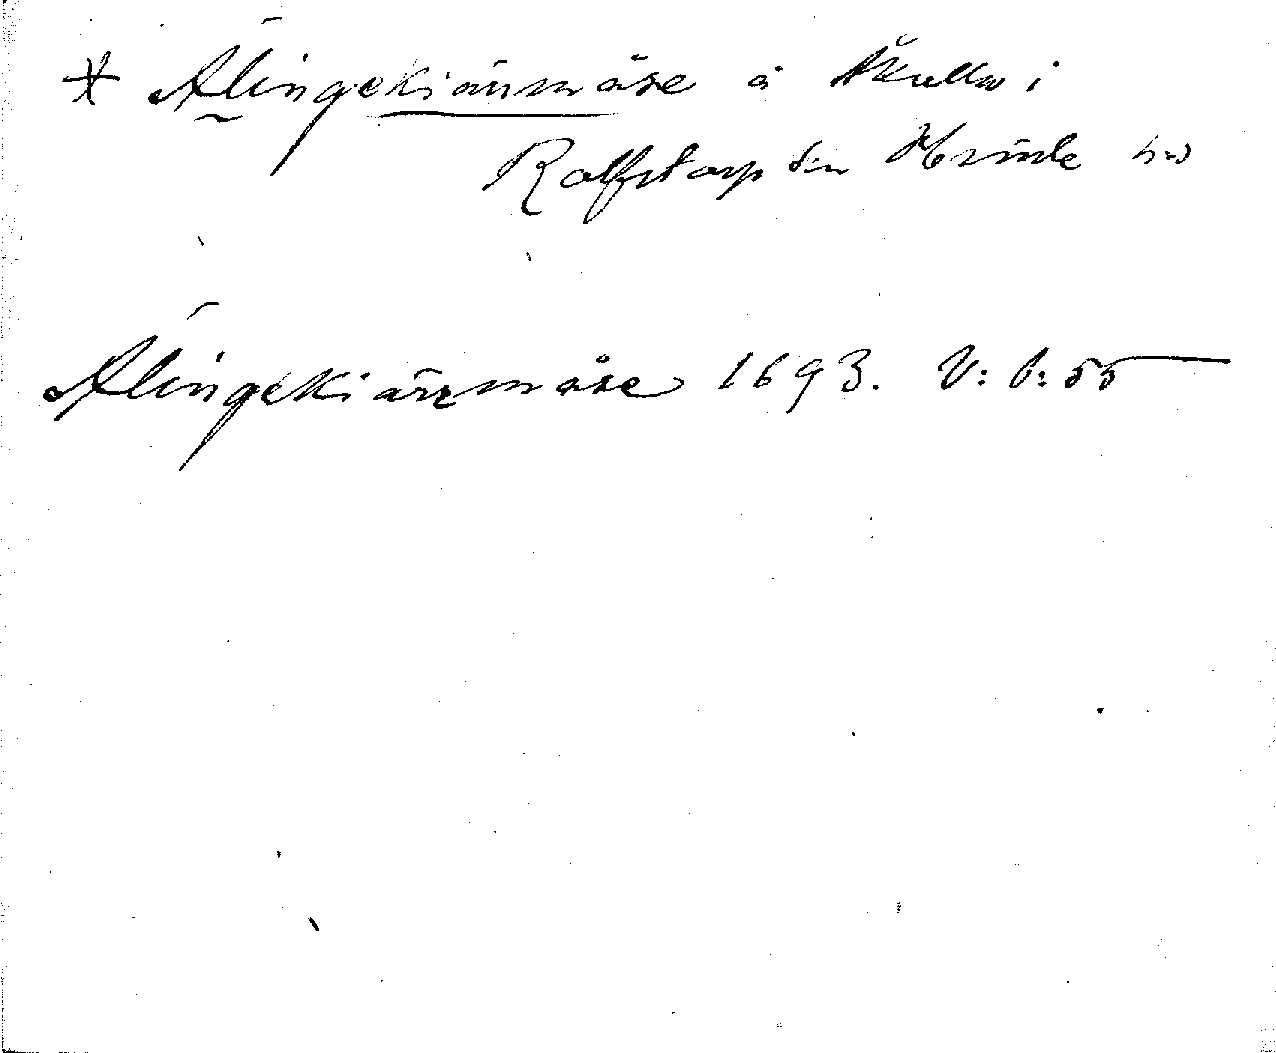 * Älingekiärrmåse å Skulla i
Rolfstorp sn Himle hd
Älingekiärrmåse 1693. V: 6: 55